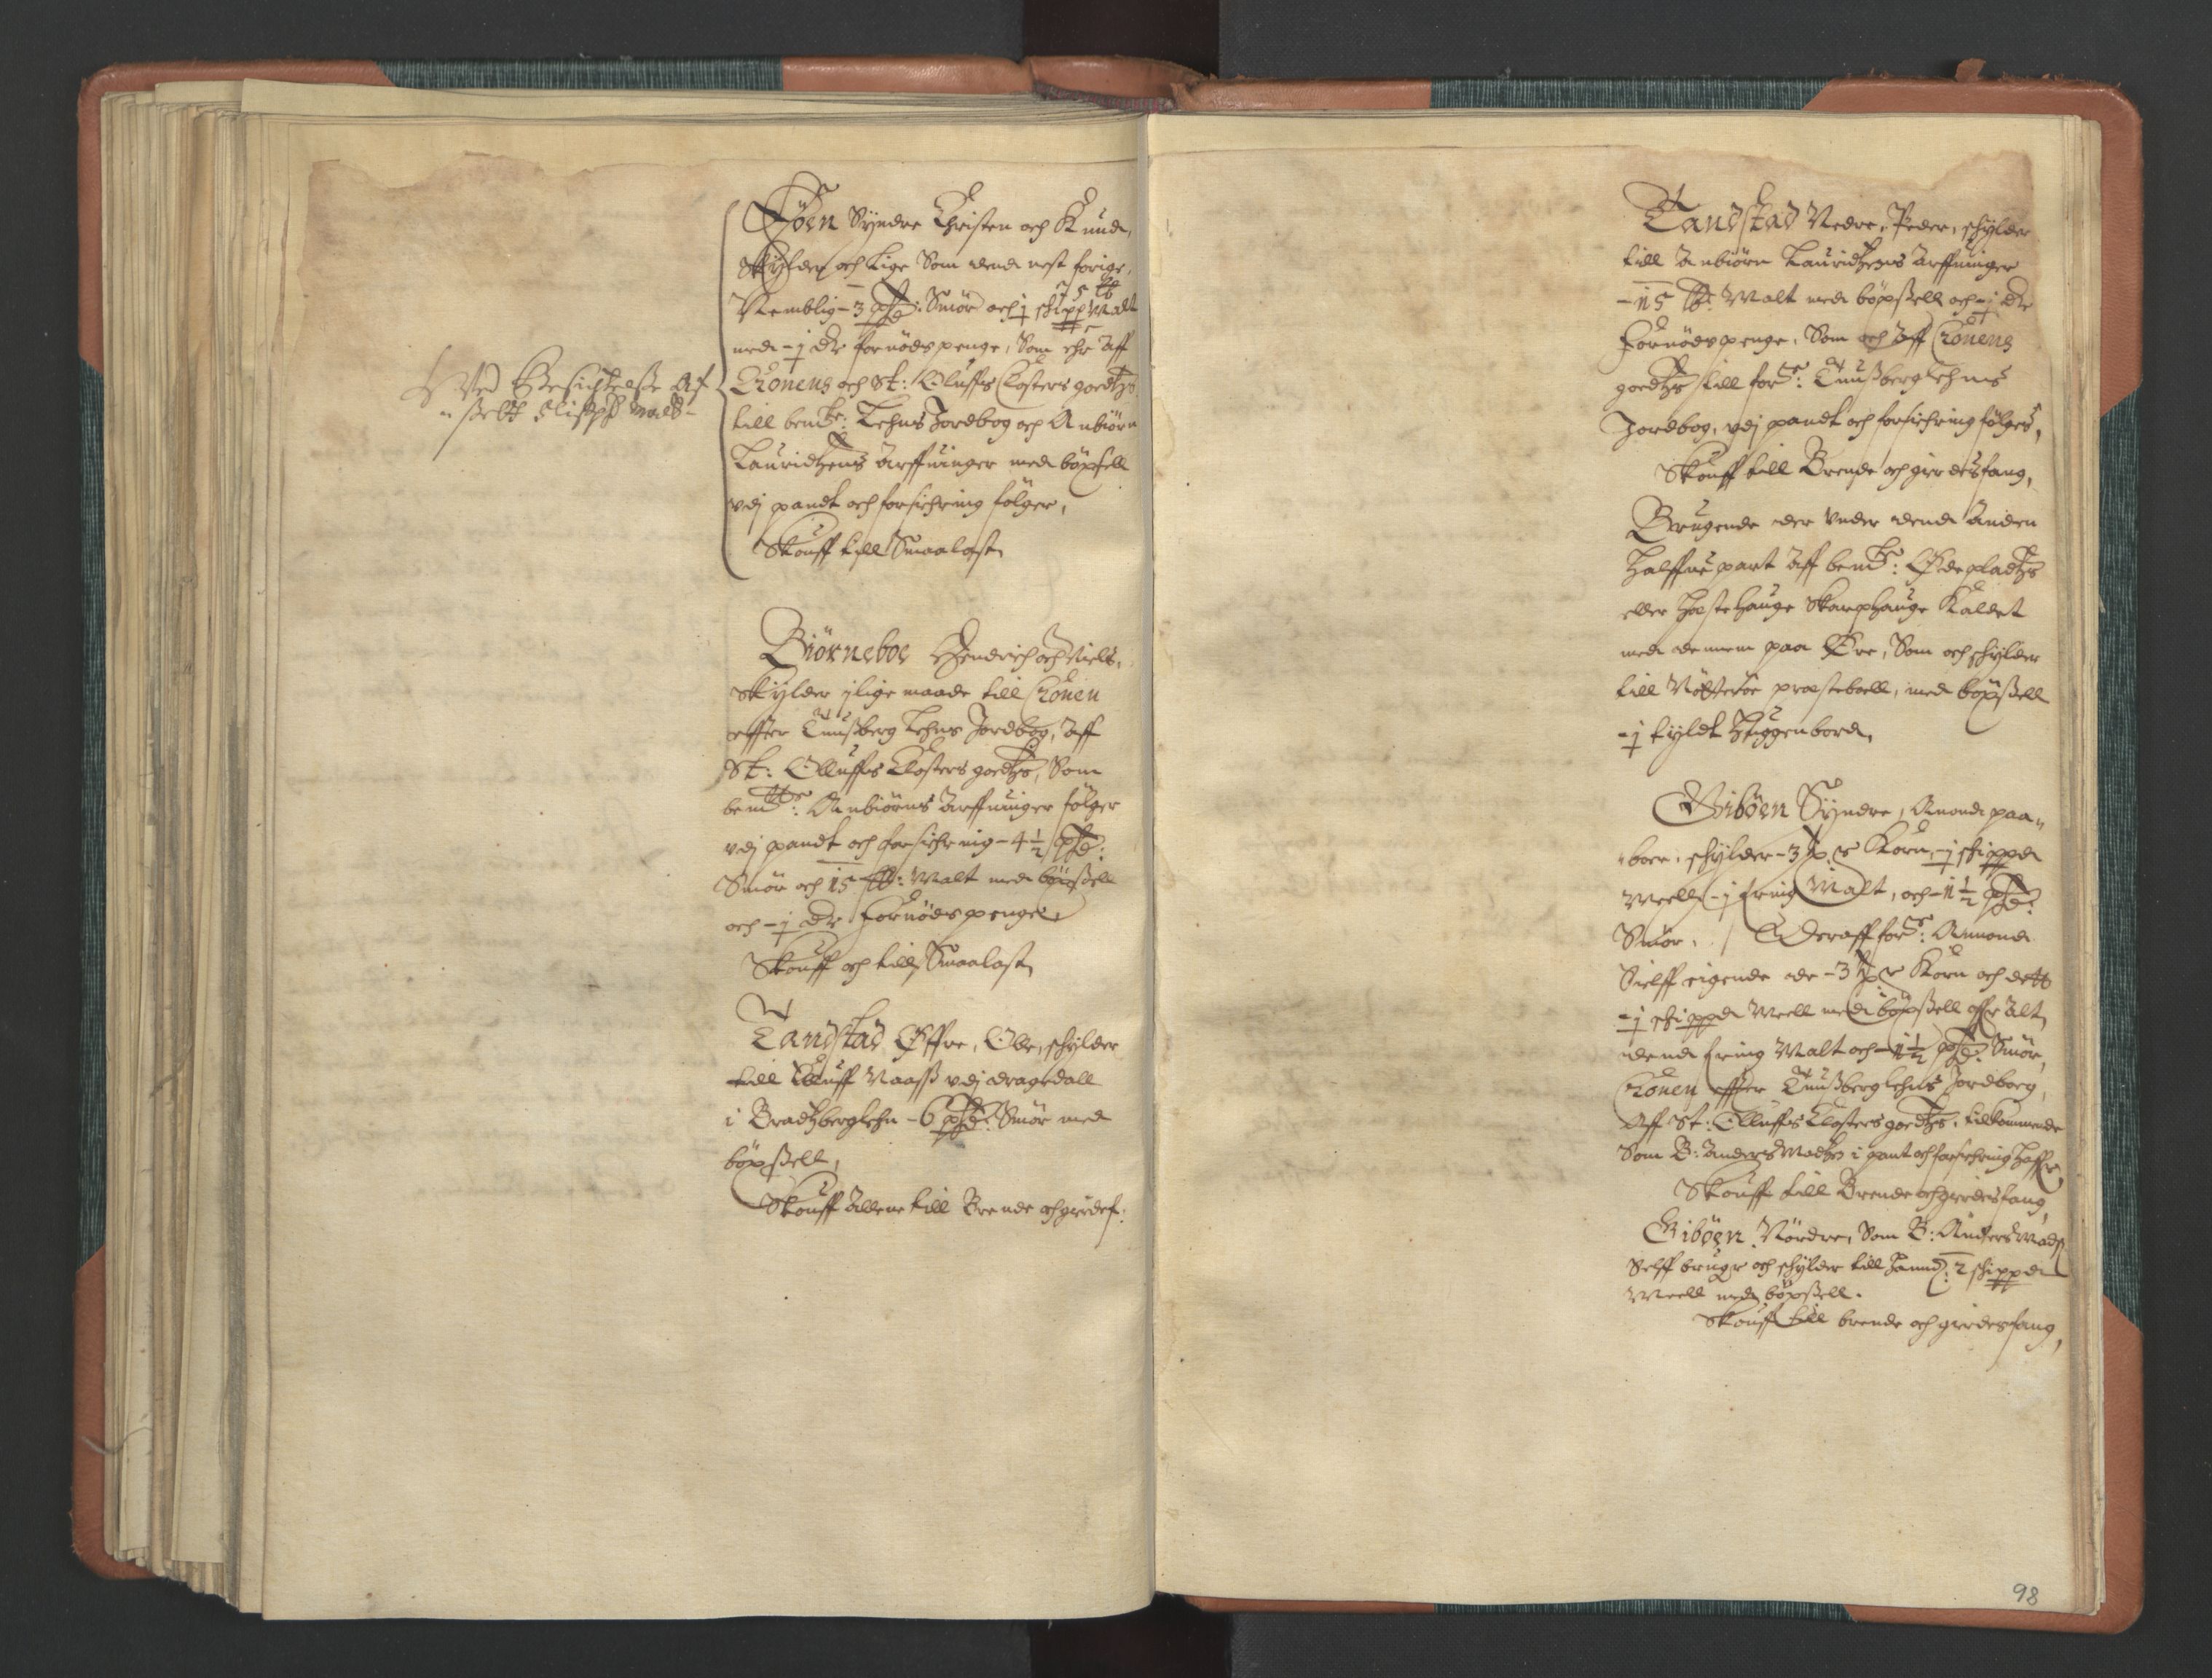 Ved Besichtelse Af
Föen Syndre Christen och Knud,
Skylder och Lige Som dend nest forige,
Nemblig - 3 pd: Smör och j schipp Malt
med - j dr fornödspenge, Som ehr Aff
Cronens och St: Oluffs Closters goedtz
till bemte: Lehns Jordbog och Anbiörn
Lauridtzens Arffuinger med böxsell
vdj pandt och forsichring fölger,
Skouff till Smaalast,
Biörneboe Hendrich och Niels,
Skylder jlige maade till Cronen
effter Tunsberg Lehns Jordbog, Aff
St: Olluffs Closters goedtz, Som
bemte: Anbiörns Arffuinger fölger
vdj pandt och forsichring - 4 ½ pd:
Smör och 15 lb: Malt med böxsell
och - j dr Fornödspenge,
Skouff och till Smaalast,
Tandstad Öffre, Ole, schylder
till Oluff Naasß vdj dragedall
i Bradtzberglehn - 6 pd: Smör med
böxsell,
Skouff Allene till Brende och gierdef:
Tandstad Nedre, Peder, schylder
till Anbiörn Lauridtzens Arffuinger
- 15 lb: Malt med böxsell och - j dr
Fornödspenge, Som och Aff Cronens
goedtz till forne: Tunsberg Lehns
Jordbog, vdj pandt och forsichring fölges,
Skouff till Brende och gierdesfang,
Brugende der Under dend Anden
Halffue part Aff bemte: Ödepladtz
eller Hæstehauge Skarphauge Kaldet
med dennem paa Öre, Som och schylder
till Nötteröe præsteboell, med böxsell
- j tyldt Huggenbord,
Gibøen Syndre, Amond paa-
boer, schylder - 3 Korn, - j schippd
Meell - j fring Malt, och - 1 ½ pd:
Smör, / Deraff forne: Amond
Sielff eigende de - 3 Korn och dett
- j schippd Meell med böxsell offr Alt,
dend fring Malt och - 1 ½ pd: Smör,
Cronen effter Tunsberg Lehns Jordboeg,
Aff St: Olluffs Closters goedtz, tilkommende
Som B: Anders Madtz i pant och forsichring haffr,
Skouff till Brende och gierdesfang,
Gibøen Nördre, Som B: Anders Mads
Selff bruger och schylder till hannd: 2 schippd
Meell med böxsell.
Skouff till brende och gierdesfang,
98